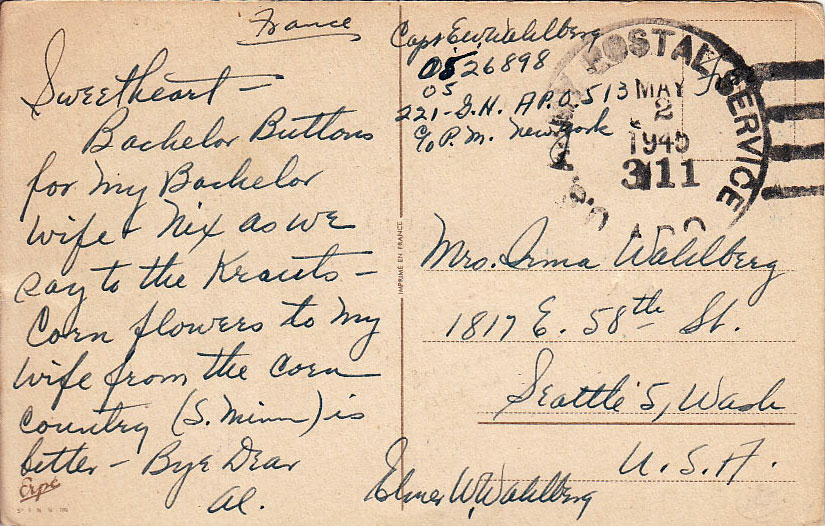 France
Sweetheart –
Bachelor Buttons
for my Bachelor
Wife – Nix as we
say to the Krauts –
Corn flowers to my
wife from the corn
country (S. Minn) is
better – Bye Dear
Al.
Erpé
IMPRIMÉ EN FRANCE
Capt E.W. Wahlberg
0526898
05
221-G.H. A.P.O. 513
C/o P.M. New York
POSTAL SERVICE
MAY
2
1945
311
A.P.O.
Mrs. Irma Wahlberg
1817 E. 58th St.
Seattle 5, Wash
U.S.A.
Elmer W. Wahlberg